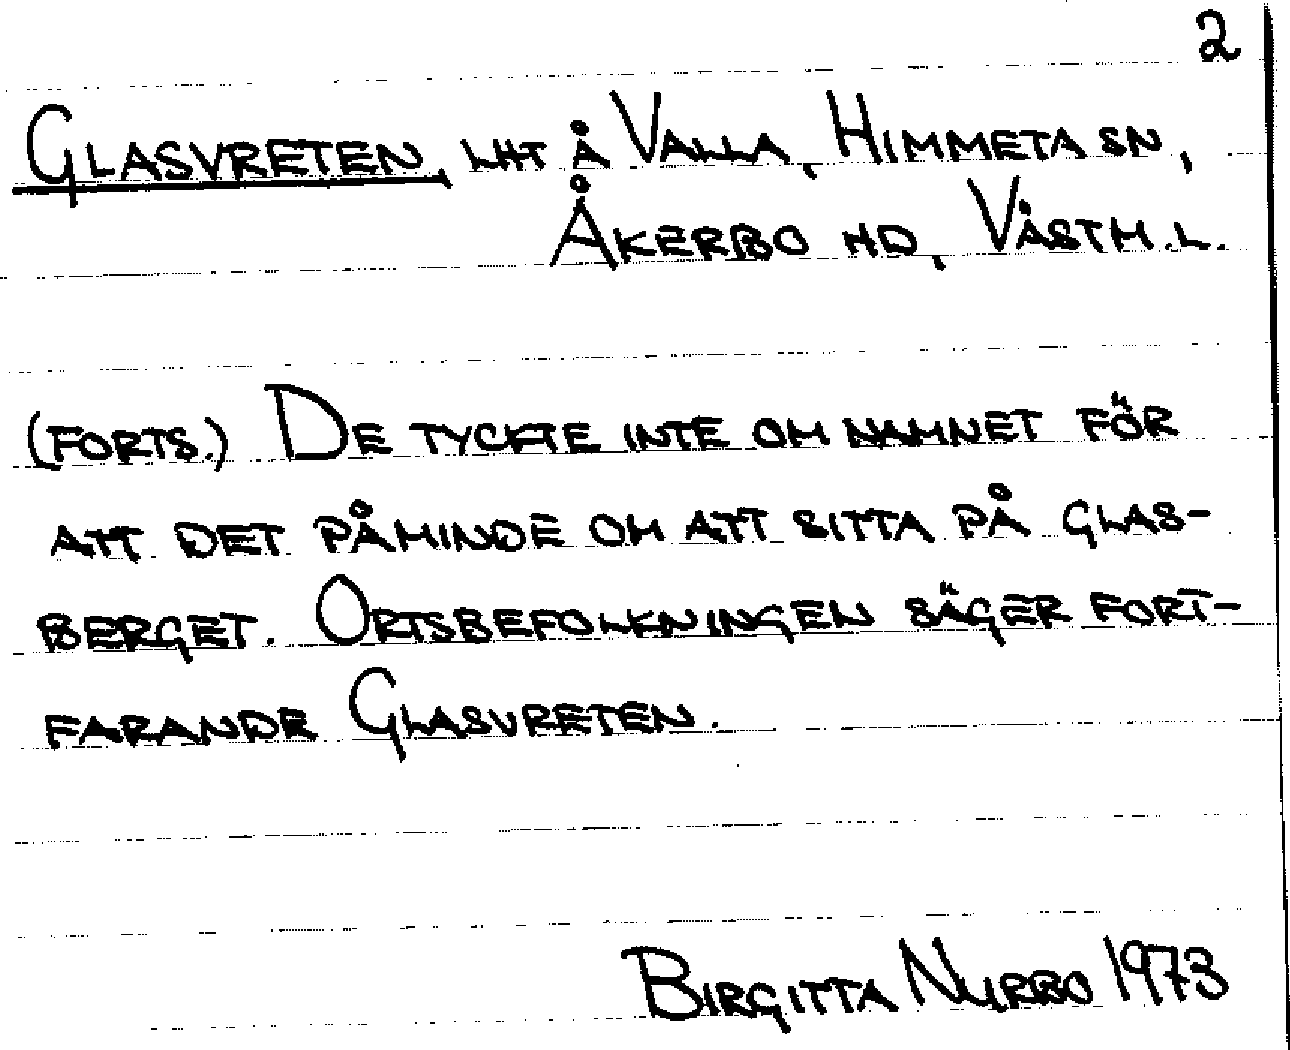 2
GLASVRETEN, LHT Å VALLA, HIMMETA SN,
ÅKERBO HD, VÄSTM. L.
(FORTS.) DE TYCKTE INTE OM NAMNET FÖR
ATT DET PÅMINDE OM ATT SITTA PÅ GLAS-
BERGET. ORTSBEFOLKNINGEN SÄGER FORT-
FARANDE GLASVRETEN.
BIRGITTA NYRBO 1973